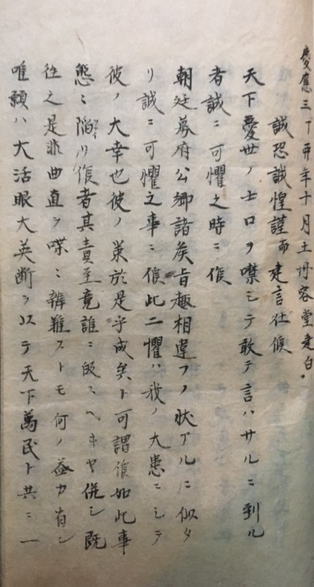 慶應三丁卯年十月土州容堂建白
誠恐誠惶謹而建言仕候
天下憂世ノ士口ヲ噤シテ敢テ言ハサルニ到ル
者誠ニ可懼之時ニ候
朝廷幕府公卿諸矦旨趣相違フノ狀アルニ似タ
リ誠ニ可懼之事ニ候此二懼ハ我ノ大患ニシテ
彼ノ大幸也彼ノ策於是乎成矣ト可謂候如此事
態ニ陥リ候者其責至竟誰ニ歸スヘキヤ併シ既
往之是非曲直ヲ喋々辨難ストモ何ノ益カ有ン
唯願ハ大活眼大英断ヲ以テ天下萬民ト共ニ一